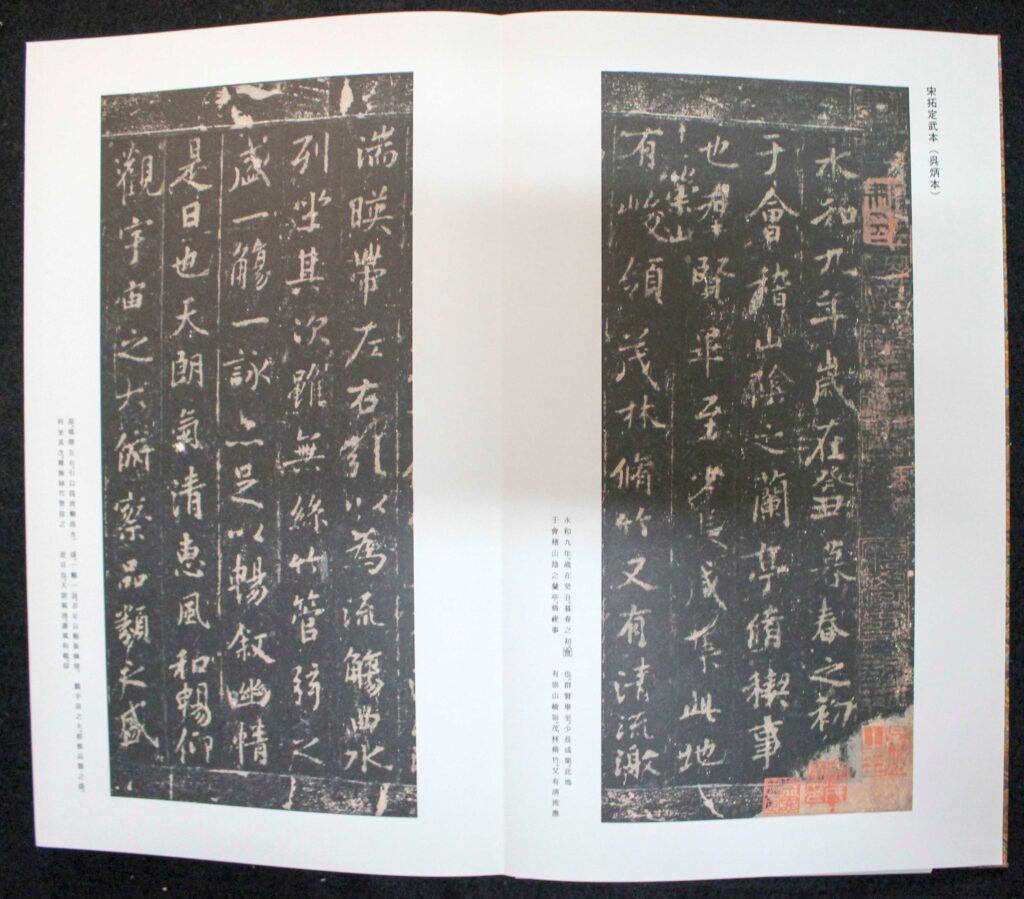 宋拓定武本（呉炳本）
永和九年歲在癸丑暮春之初
于會稽山陰之蘭亭脩禊事
也羣賢畢至少長咸集此地
有崇山峻領茂林脩竹又有清流激
永和九年、歲在癸丑、暮春之初、會
于會稽山陰之蘭亭、脩禊事
也、群賢畢至、少長咸集、此地
有崇山峻領、茂林脩竹、又有清流激
湍暎帶左右引以為流觴曲水
列坐其次雖無絲竹管弦之
盛一觴一詠亦足以暢敘幽情
是日也天朗氣清惠風和暢仰
觀宇宙之大俯察品類之盛
湍、暎帶左右、引以爲流觴曲水、
列坐其次、雖無絲竹管弦之
盛、一觴一詠、亦足以暢敘幽情、
是日也、天朗氣清、惠風和暢、仰
觀宇宙之大、俯察品類之盛、